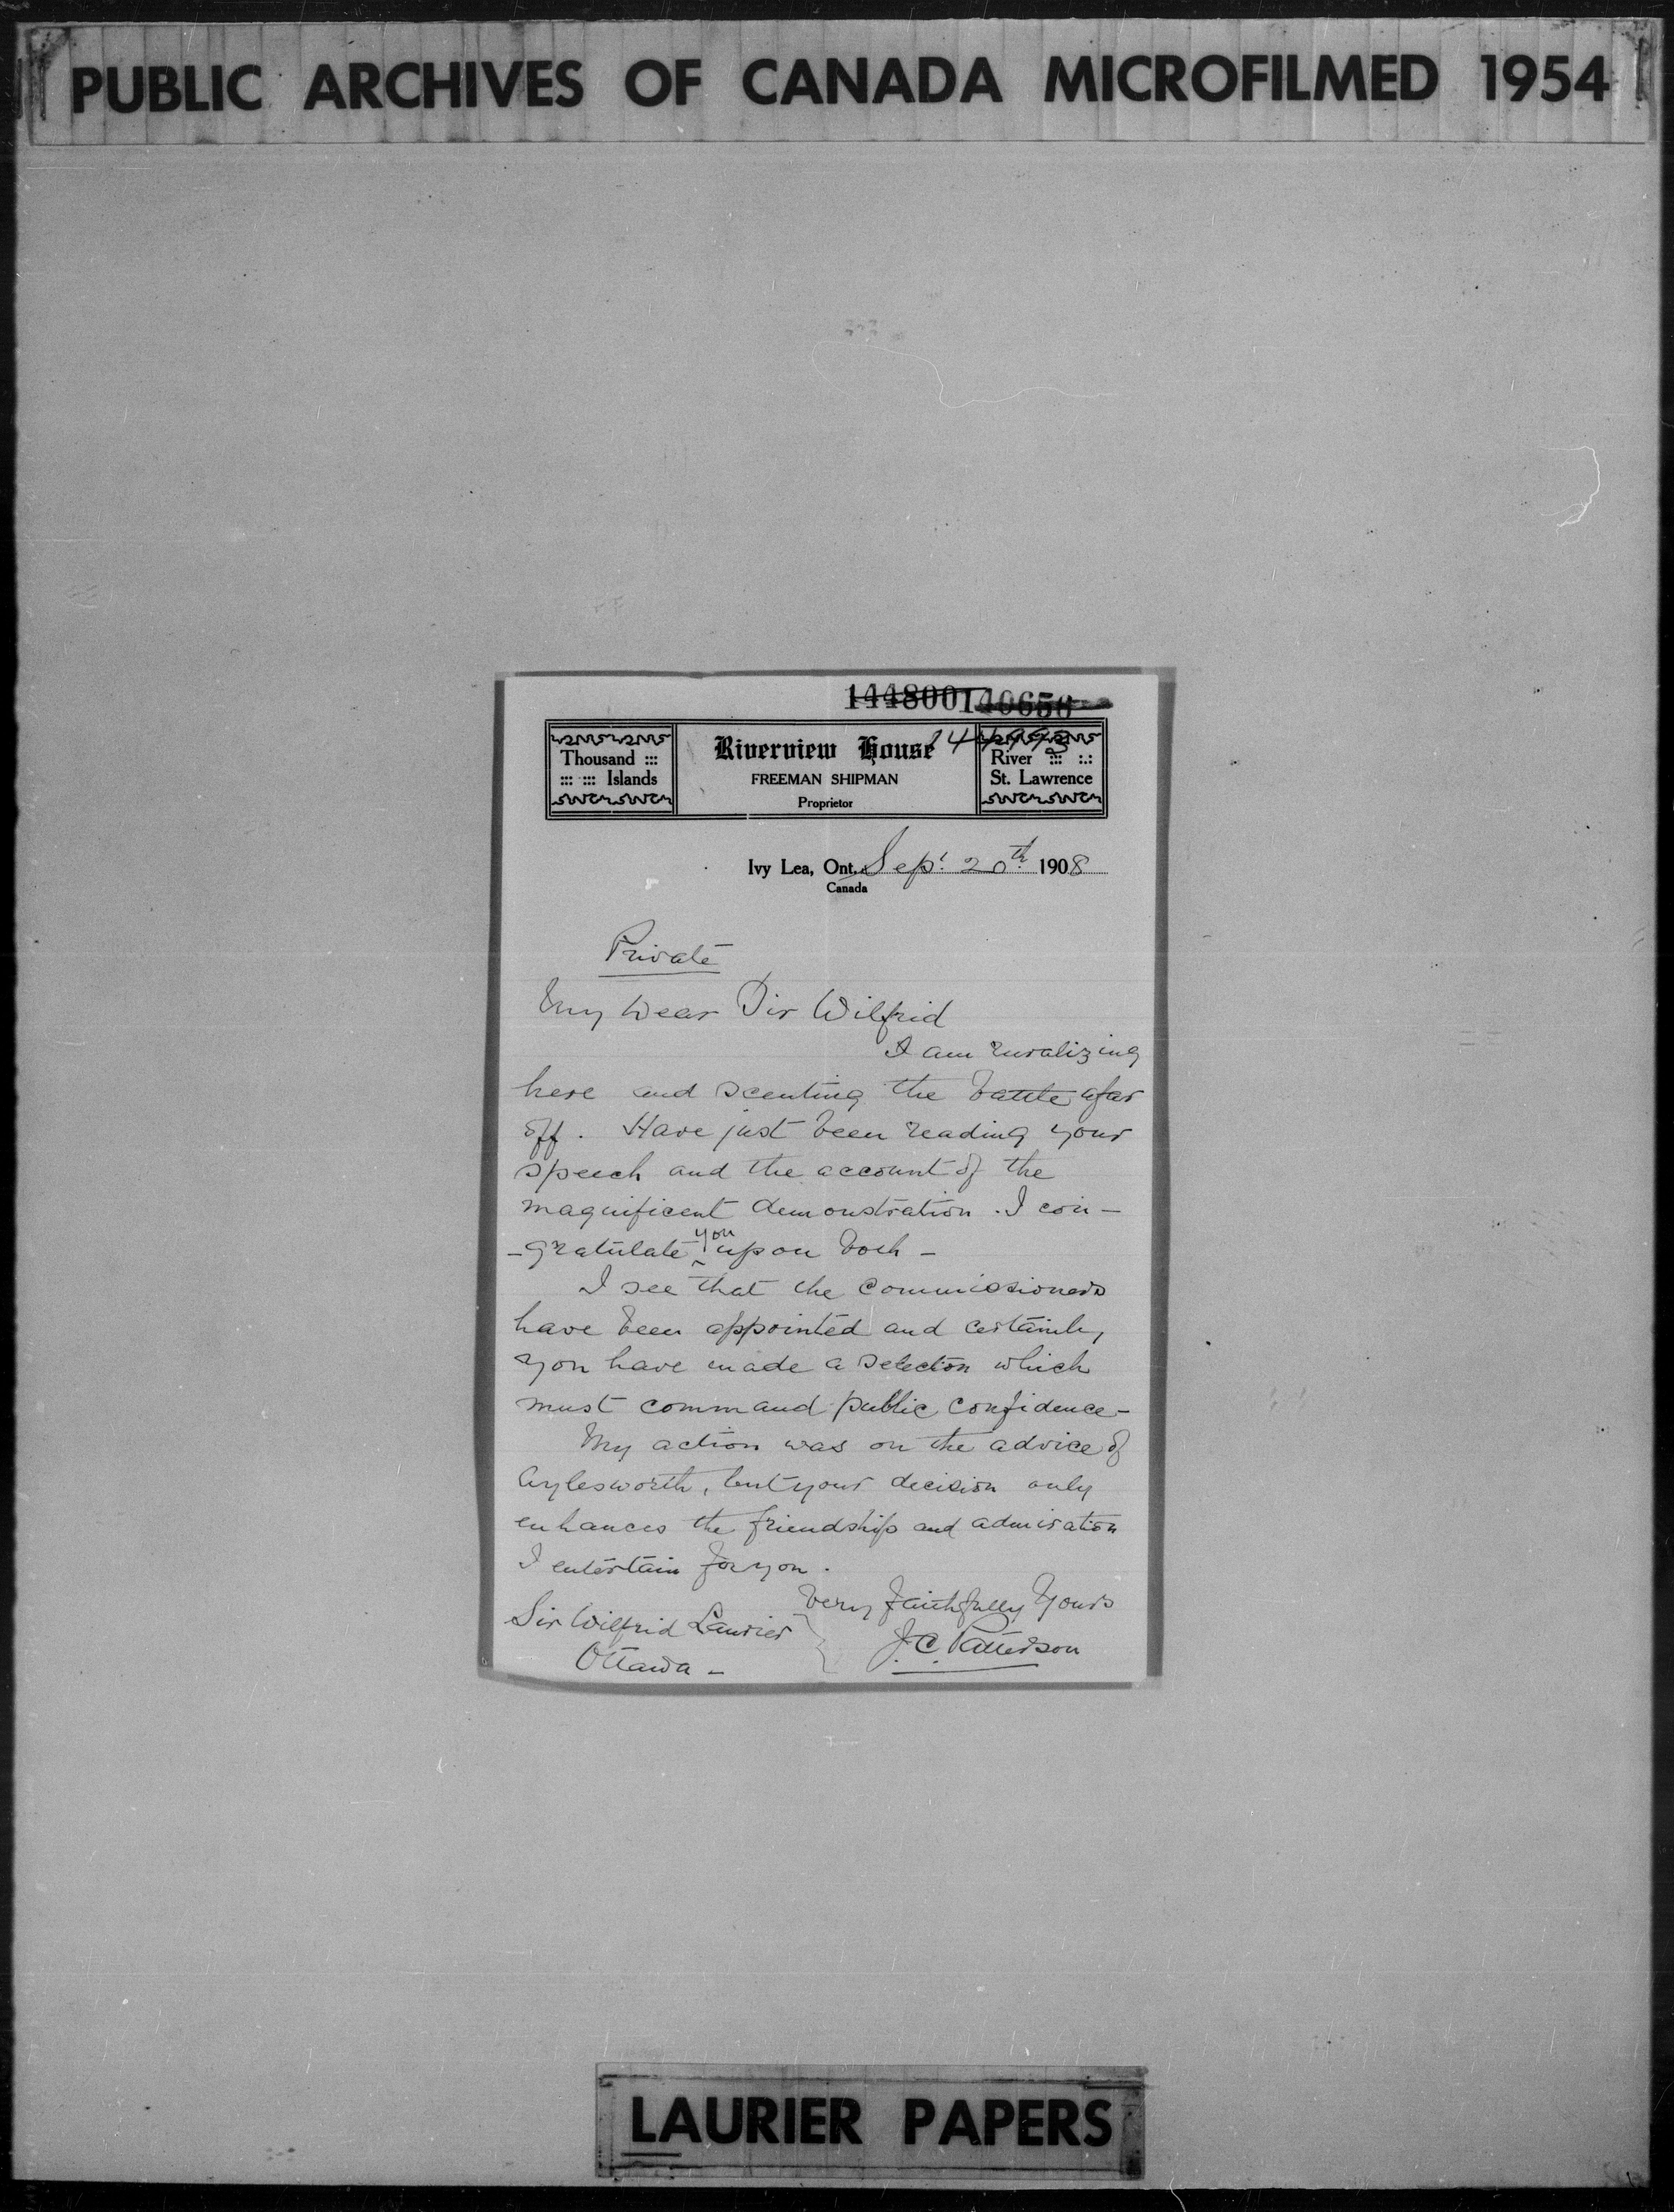 PUBLIC ARCHIVES OF CANADA MICROFILMED 1954
144800 140656
Thousand :::
::: ::: Islands
Riverview House
FREEMAN SHIPMAN
Proprietor
River ::: :.:
St. Lawrence
Ivy Lea, Ont. Sept. 20th 1908
Canada
Private
My Dear Sir Wilfrid
I am ruralizing
here and scenting the battle afar
off. Have just been reading your
speech and the account of the
magnificent demonstration. I con-
-gratulate you upon both -
I see that the Commissioners
have been appointed and certainly
you have made a selection which
must command public confidence -
My action was on the advice of
Aylesworth, but your decision only
enhances the friendship and admiration
I entertain for you.
Very faithfully Yours
J.C. Patterson
Sir Wilfrid Laurier
Ottawa -
LAURIER PAPERS